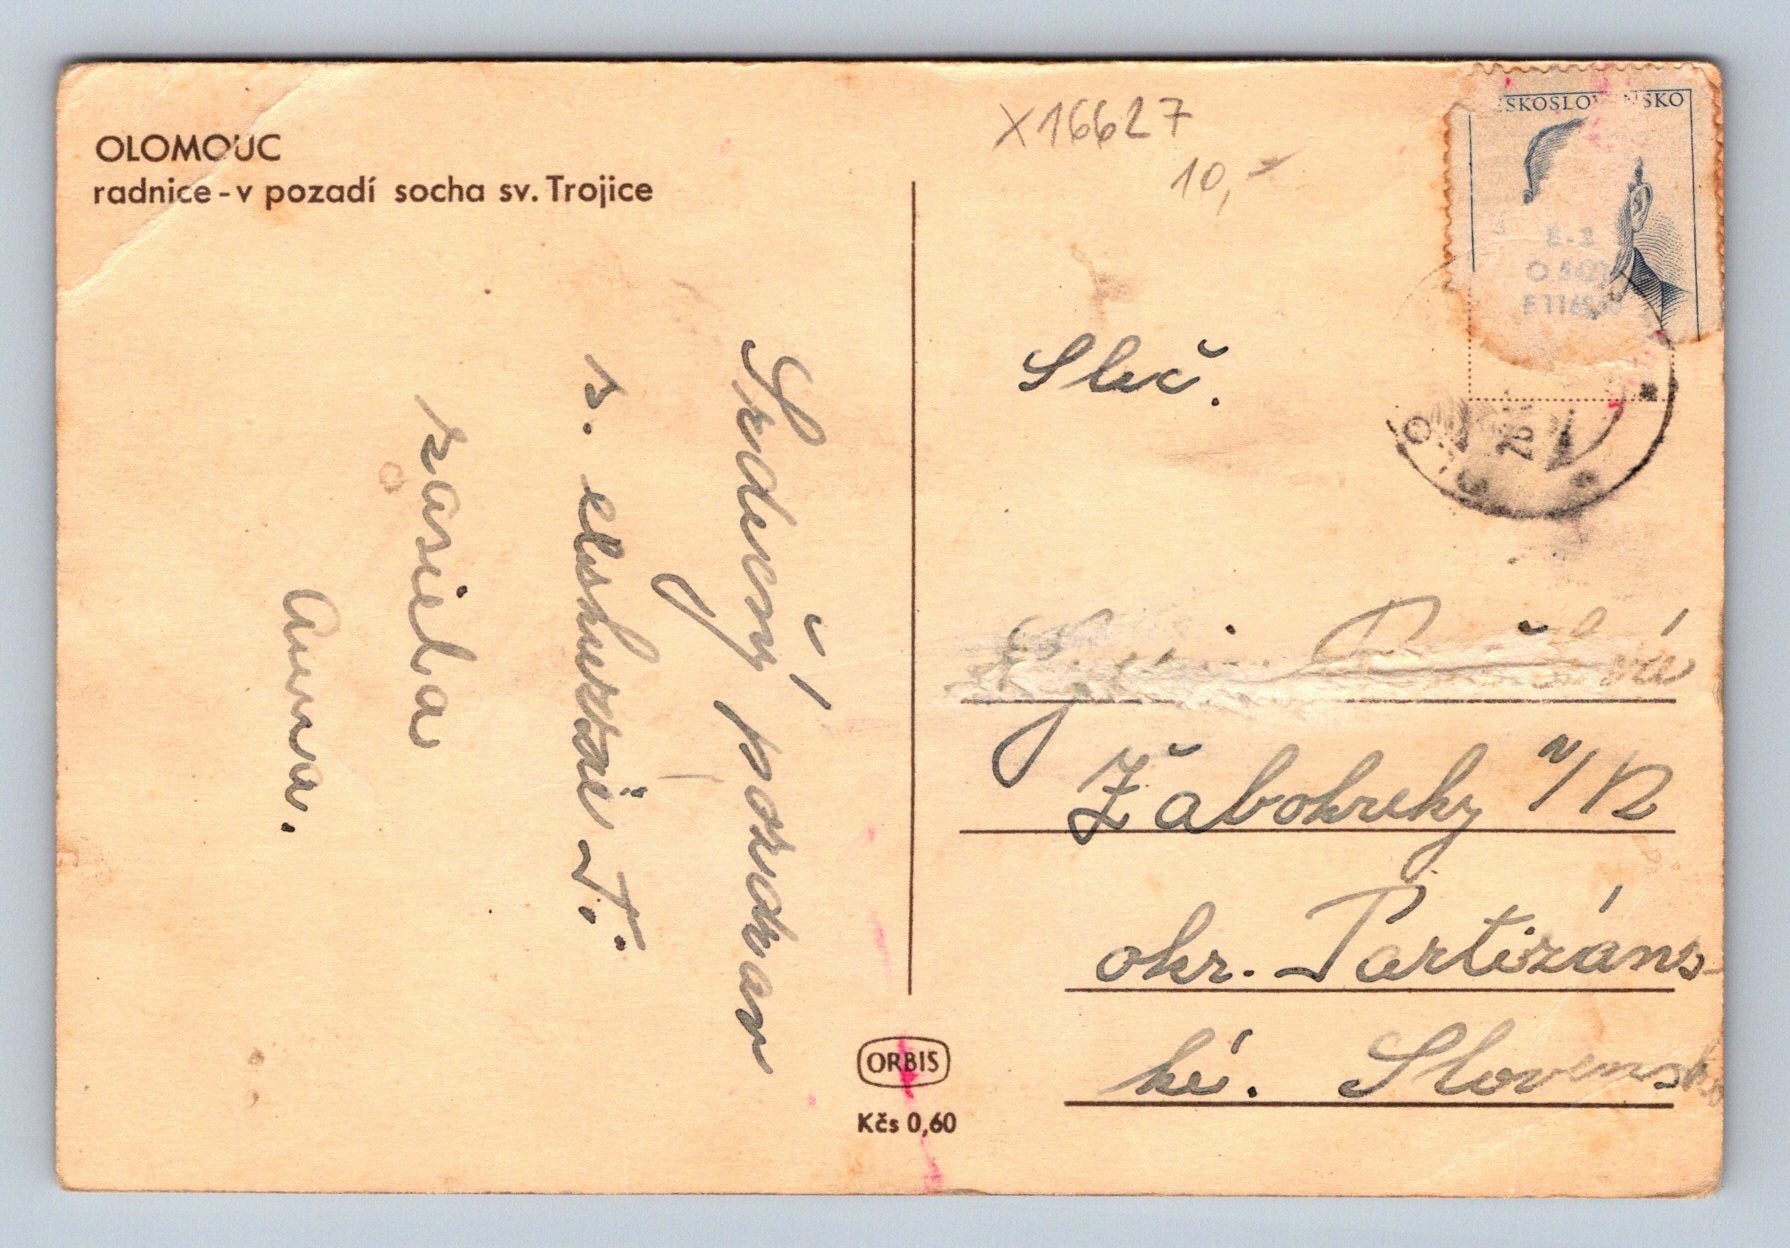 OLOMOUC
radnice - v pozadí socha sv. Trojice
X16627
10,-
ESKOSLOVENSKO
Srdečný pozdrav
z. T.
zasiela
Anna.
Sleč.
Žabokreky n/N
okr. Partizáns-
ké. Slovensko
ORBIS
Kčs 0,60